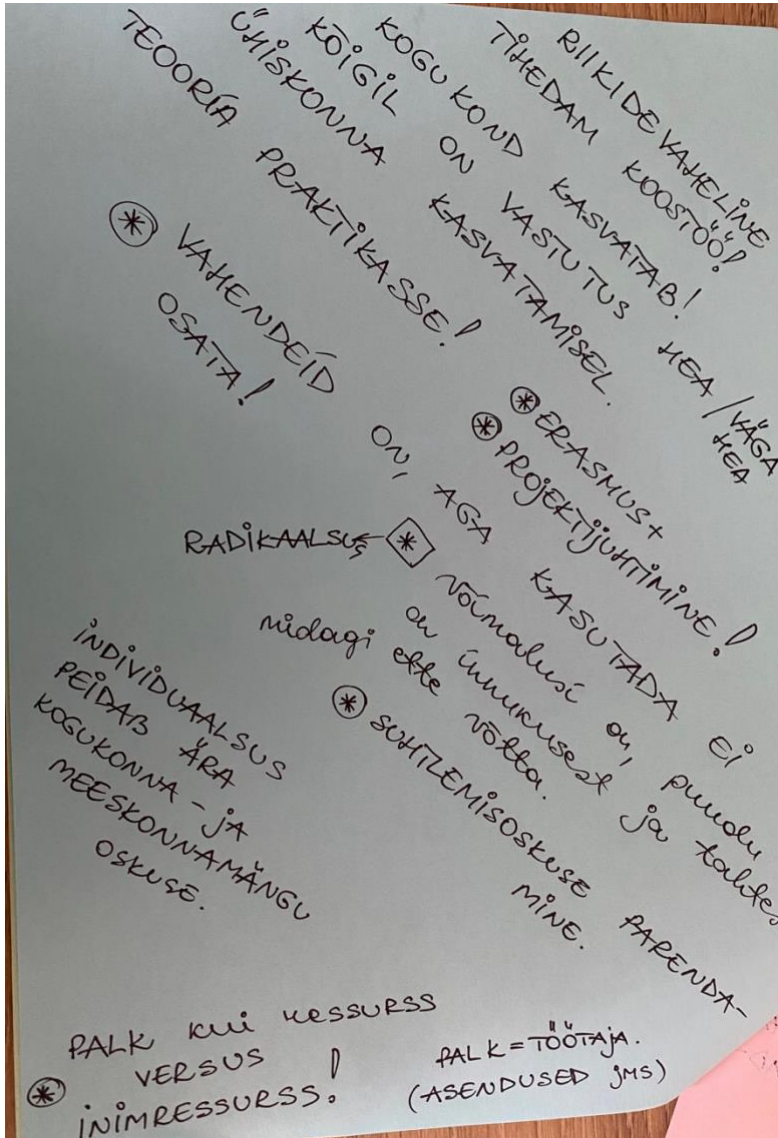 RIIKIDEVAHELINE
TIHEDAM KOOSTÖÖ!
KOGUKOND KASVATAB!
KÕIGIL ON VASTUTUS HEA / VÄGA
HEA
ÜHISKONNA KASVATAMISEL.
TEOORIA PRAKTIKASSE!
* ERASMUS+
* PROJEKTIJUHTIMINE!
* VAHENDEID ON, AGA KASUTADA EI
OSATA!
RADIKAALSUS ← * võimalusi on, puudu
on innukusest ja tahtes
midagi ette võtta.
* SUHTLEMISOSKUSE PARENDA-
MINE.
INDIVIDUAALSUS
PEIDAB ÄRA
KOGUKONNA- JA
MEESKONNAMÄNGU
OSKUSE.
* PALK kui RESSURSS
VERSUS
INIMRESSURSS!
PALK = TÖÖTAJA.
(ASENDUSED JMS)